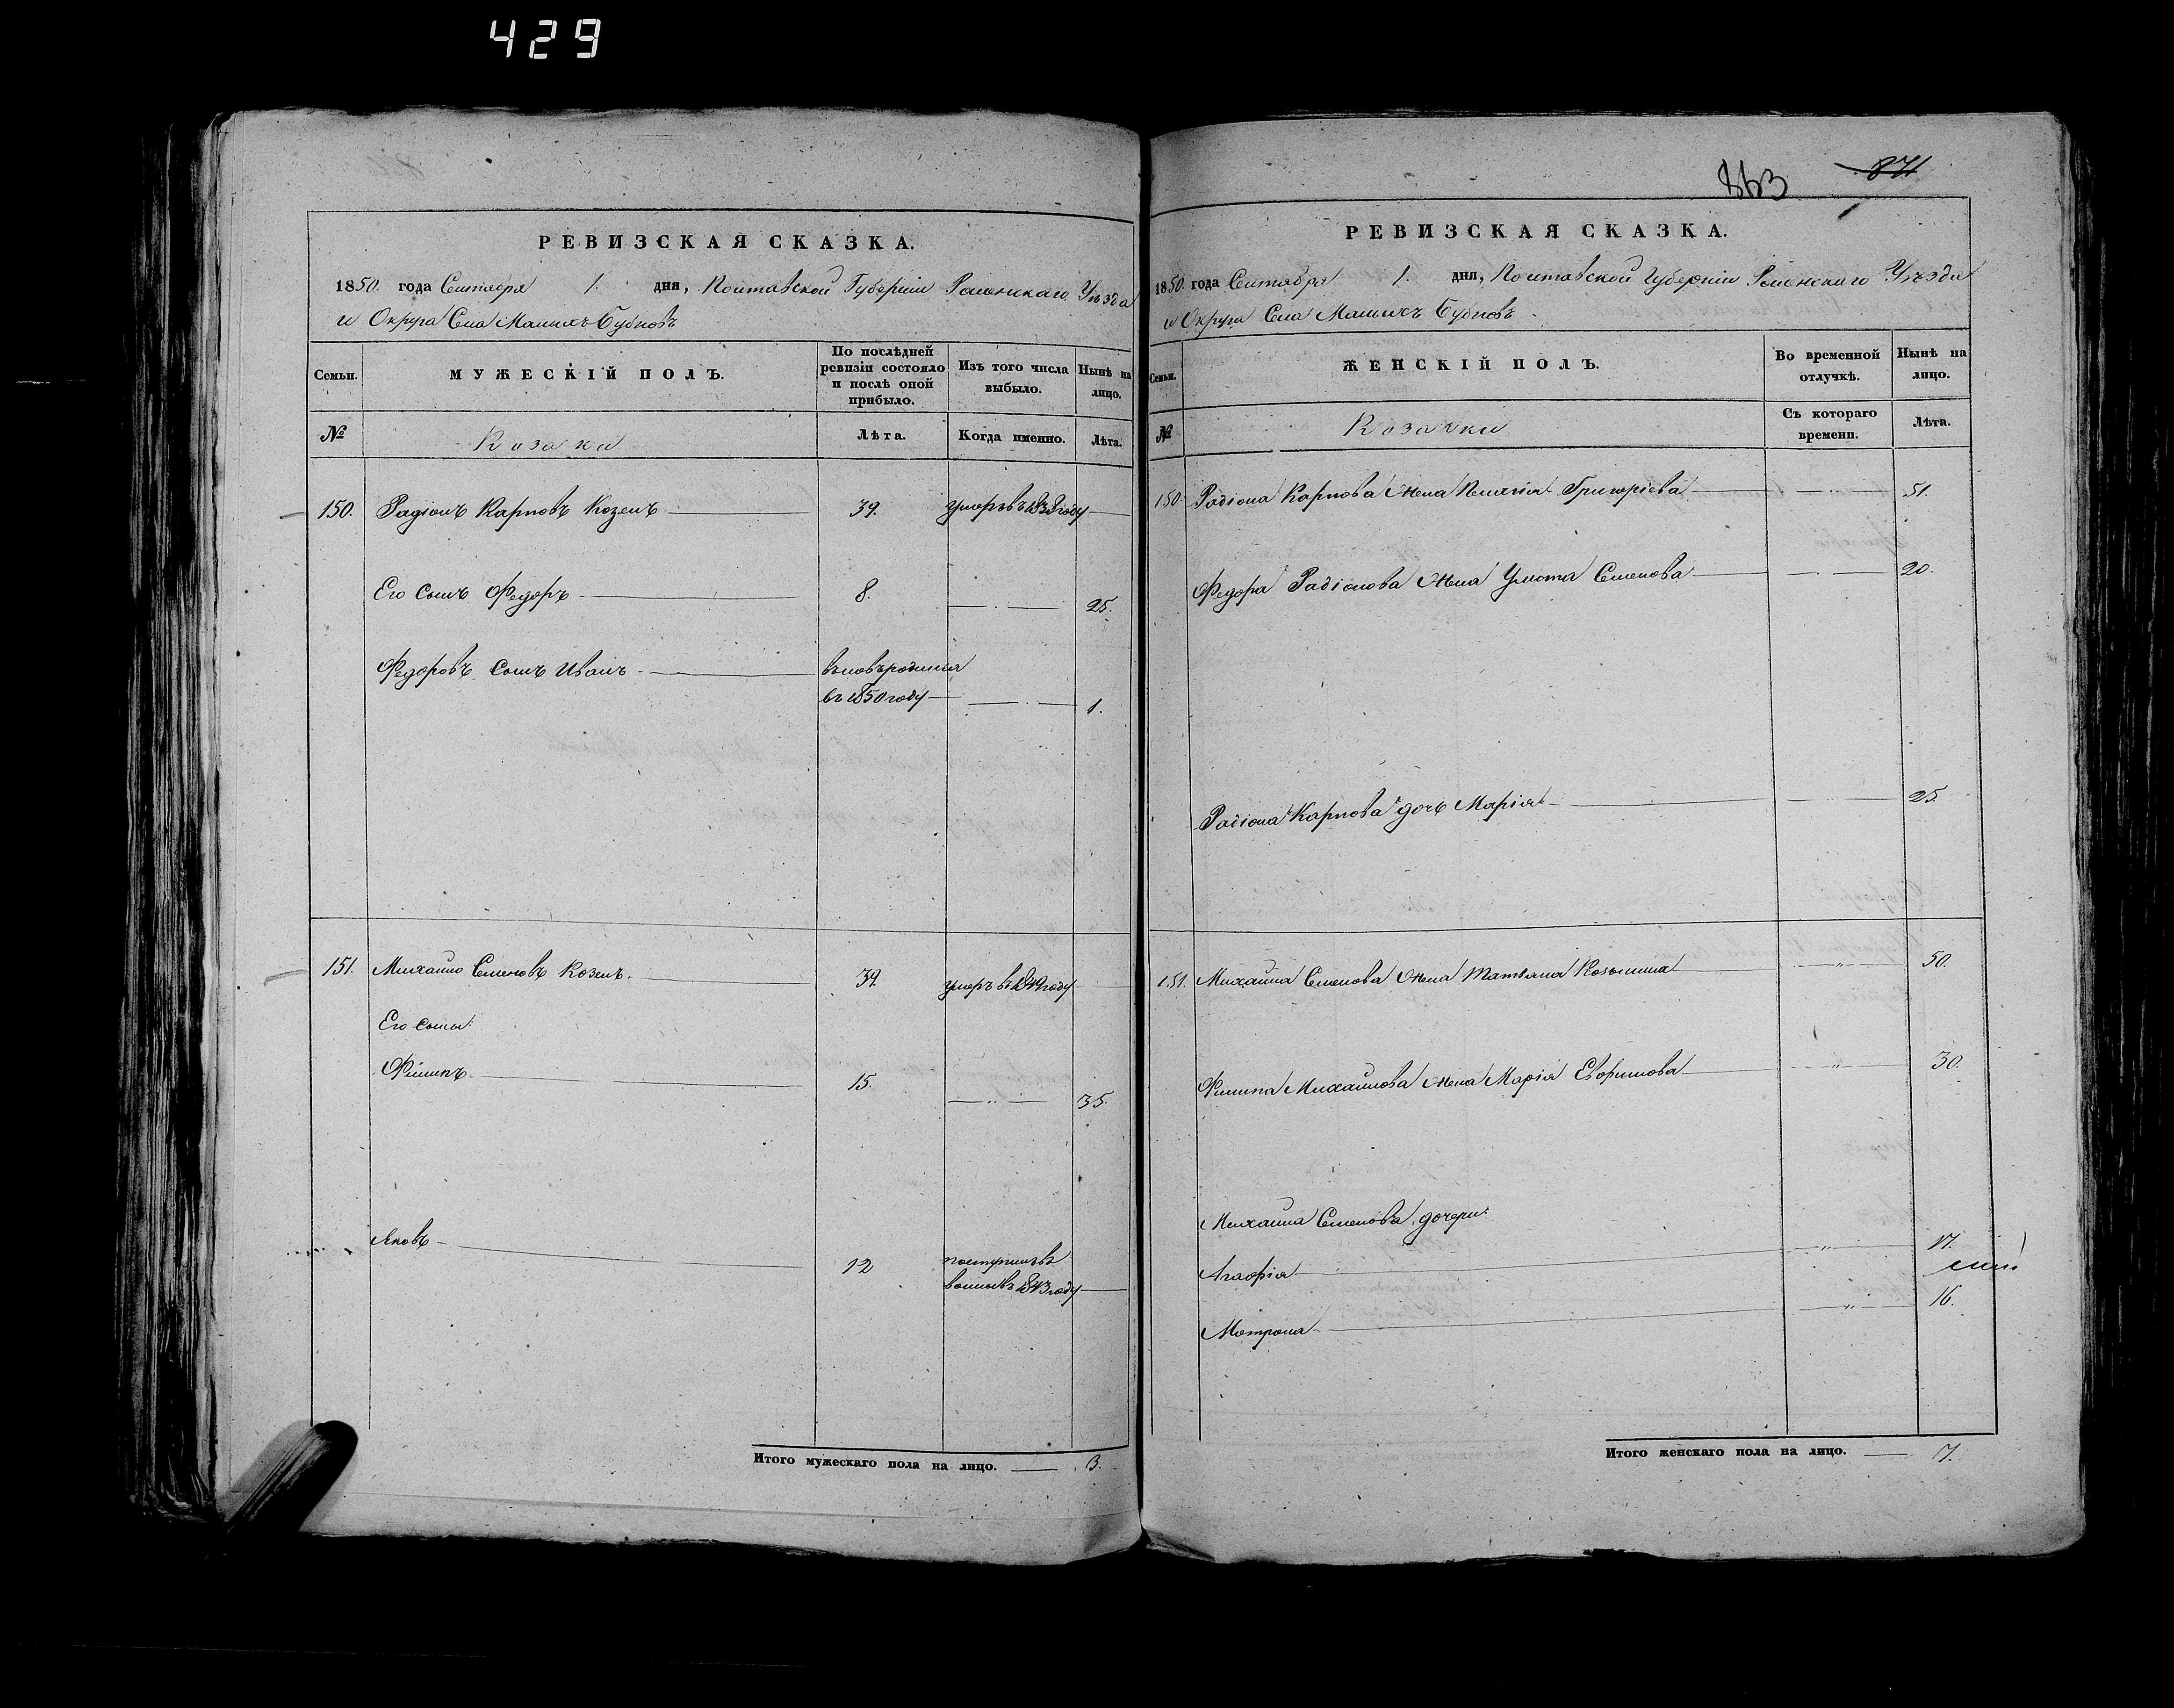 429
РЕВИЗСКАЯ СКАЗКА.
1850. года Сентября 1. дня, Полтавской Губерніи Роменскаго Уѣзда
и Округа Села Малыхъ Бубновъ
Семьи.
МУЖЕСКІЙ ПОЛЪ.
По послѣдней ревизіи состояло и послѣ оной прибыло.
Изъ того числа выбыло.
Нынѣ на лицо.
№
Козаки
Лѣта.
Когда именно.
Лѣта.
150. Радіонъ Карповъ Козелъ 39. умеръ въ 1838 году
Его Сынъ Федоръ 8. 25.
Федоровъ Сынъ Иванъ вновь родился
въ 1850 году 1.
151. Михайло Семеновъ Козелъ. 39. умеръ въ 1849 году
Его сыны:
Филипъ 15. 35.
Яковъ 12 поступилъ въ
въ 1843 году
Итого мужескаго пола на лицо. 3.
863 871
РЕВИЗСКАЯ СКАЗКА.
1850. года Сентября 1. дня, Полтавской Губерніи Роменскаго Уѣзда
и Округа Села Малыхъ Бубновъ
Семьи.
ЖЕНСКІЙ ПОЛЪ.
Во временной отлучкѣ.
Нынѣ на лицо.
№
Козачки
Съ котораго времени.
Лѣта.
150. Радіона Карпова жена Пелагія Григоріева 51.
Федора Радіонова жена Улита Семенова 20.
Радіона Карпова дочь Марія 25.
151. Михайла Семенова жена Татіана Козьмина 50.
Филипа Михайлова жена Марія Ефимова 30.
Михайла Семенова дочери:
Агафія 17.
Мотрона 16.
Итого женскаго пола на лицо. 7.